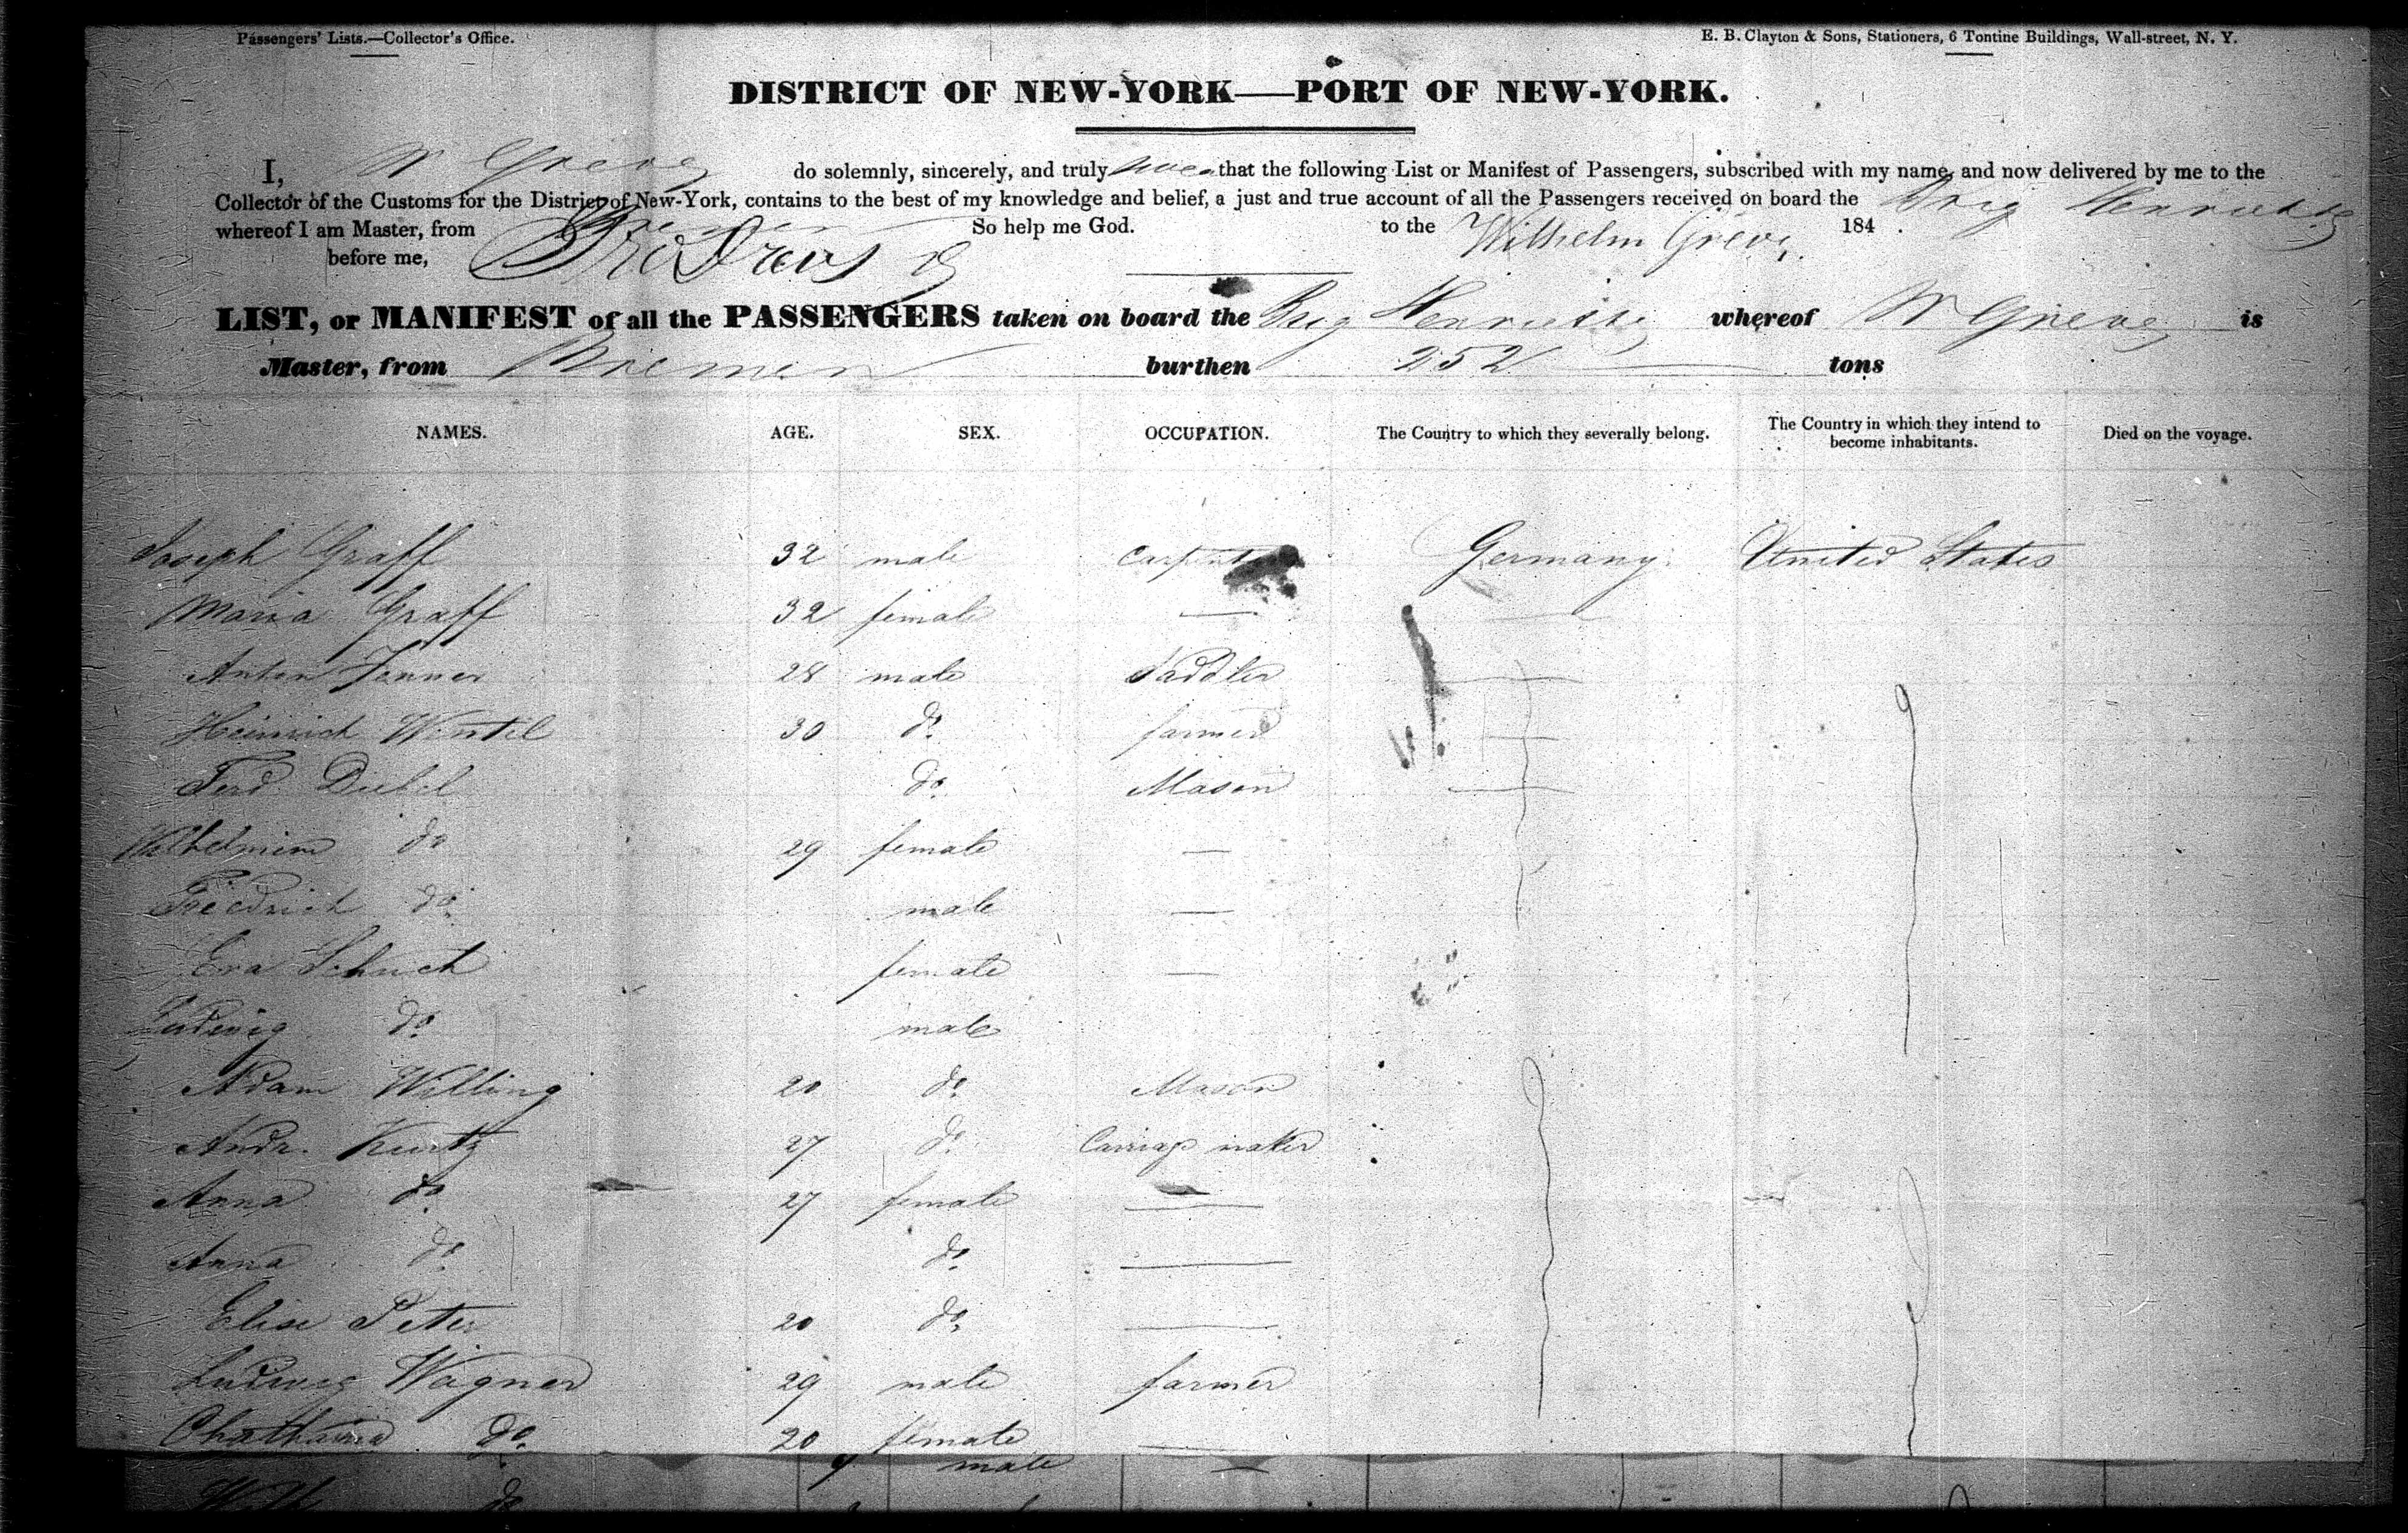 Passengers' Lists.—Collector's Office. E. B. Clayton & Sons, Stationers, 6 Tontine Buildings, Wall-street, N. Y.
DISTRICT OF NEW-YORK—PORT OF NEW-YORK.
I, W Greve do solemnly, sincerely, and truly that the following List or Manifest of Passengers, subscribed with my name, and now delivered by me to the
Collector of the Customs for the District of New-York, contains to the best of my knowledge and belief, a just and true account of all the Passengers received on board the Brig Henriette
whereof I am Master, from Bremen So help me God. to the Wilhelm Greve 184 .
before me,
LIST, or MANIFEST of all the PASSENGERS taken on board the Brig Henriette whereof W Greve is
Master, from Bremen burthen 252 tons
NAMES. AGE. SEX. OCCUPATION. The Country to which they severally belong. The Country in which they intend to become inhabitants. Died on the voyage.
Joseph Graff 32 male Carpenter Germany United States
Maria Graff 32 female —
Anton Jenner 28 male Saddler
Heinrich 30 do farmer
Ferd Diebel do Mason
do 29 female —
Friedrich do male —
Eva Schuch female —
Ludwig do male
Adam Willing 20 do Mason
Andr. Kurtz 27 do Carriage maker
Anna do 27 female —
Anna do do —
Elise Peter 20 do —
Ludwig Wagner 29 male farmer
do 20 female —
do male —